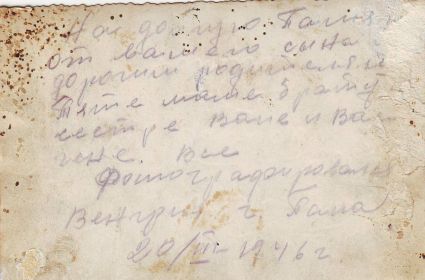 На добрую Памя
от вашего сына
дорогим родителям
Тяте маме брату
сестре Ване и Ва
гене. Все
Фотографировался
Венгрия г. Папа
20/III-1946 г.